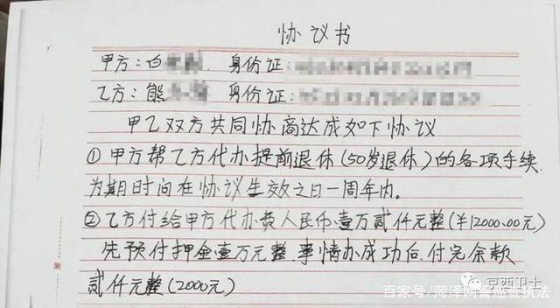 协议书
甲方：白 身份证：
乙方：熊 身份证：
甲乙双方共同协商达成如下协议
①甲方帮乙方代办提前退休（50岁退休）的各项手续
为期时间在协议生效之日一周年内。
②乙方付给甲方代办费人民币：壹万贰仟元整（￥12000.00元）
先预付押金壹万元整 事情办成功后，付完余款
贰仟元整（2000元）
京西卫士
百家号/菏泽网警巡查执法